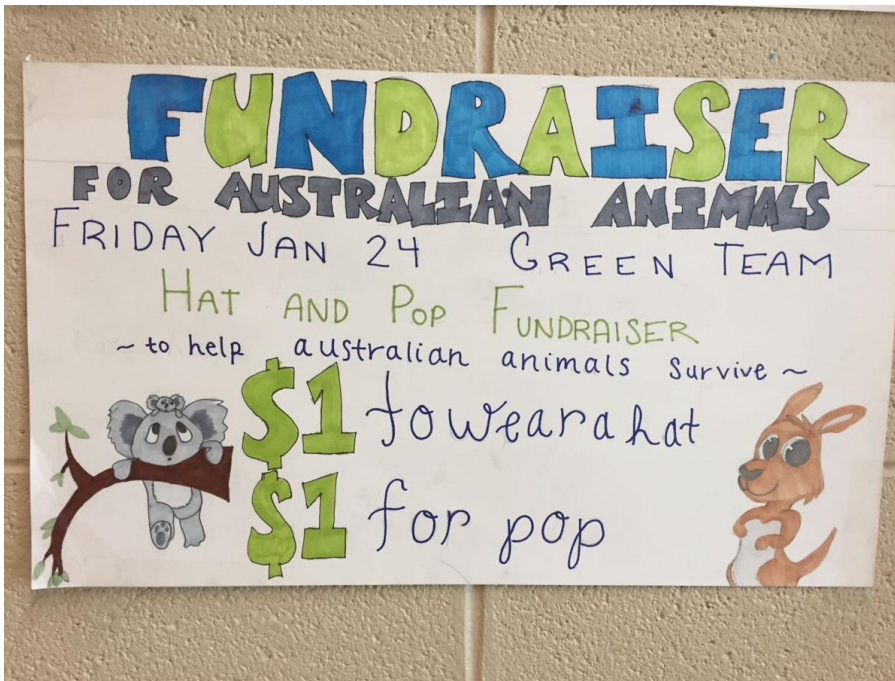 FUNDRAISER
FOR AUSTRALIAN ANIMALS
FRIDAY JAN 24 GREEN TEAM
HAT AND POP FUNDRAISER
~ to help australian animals survive ~
$1 to wear a hat
$1 for pop